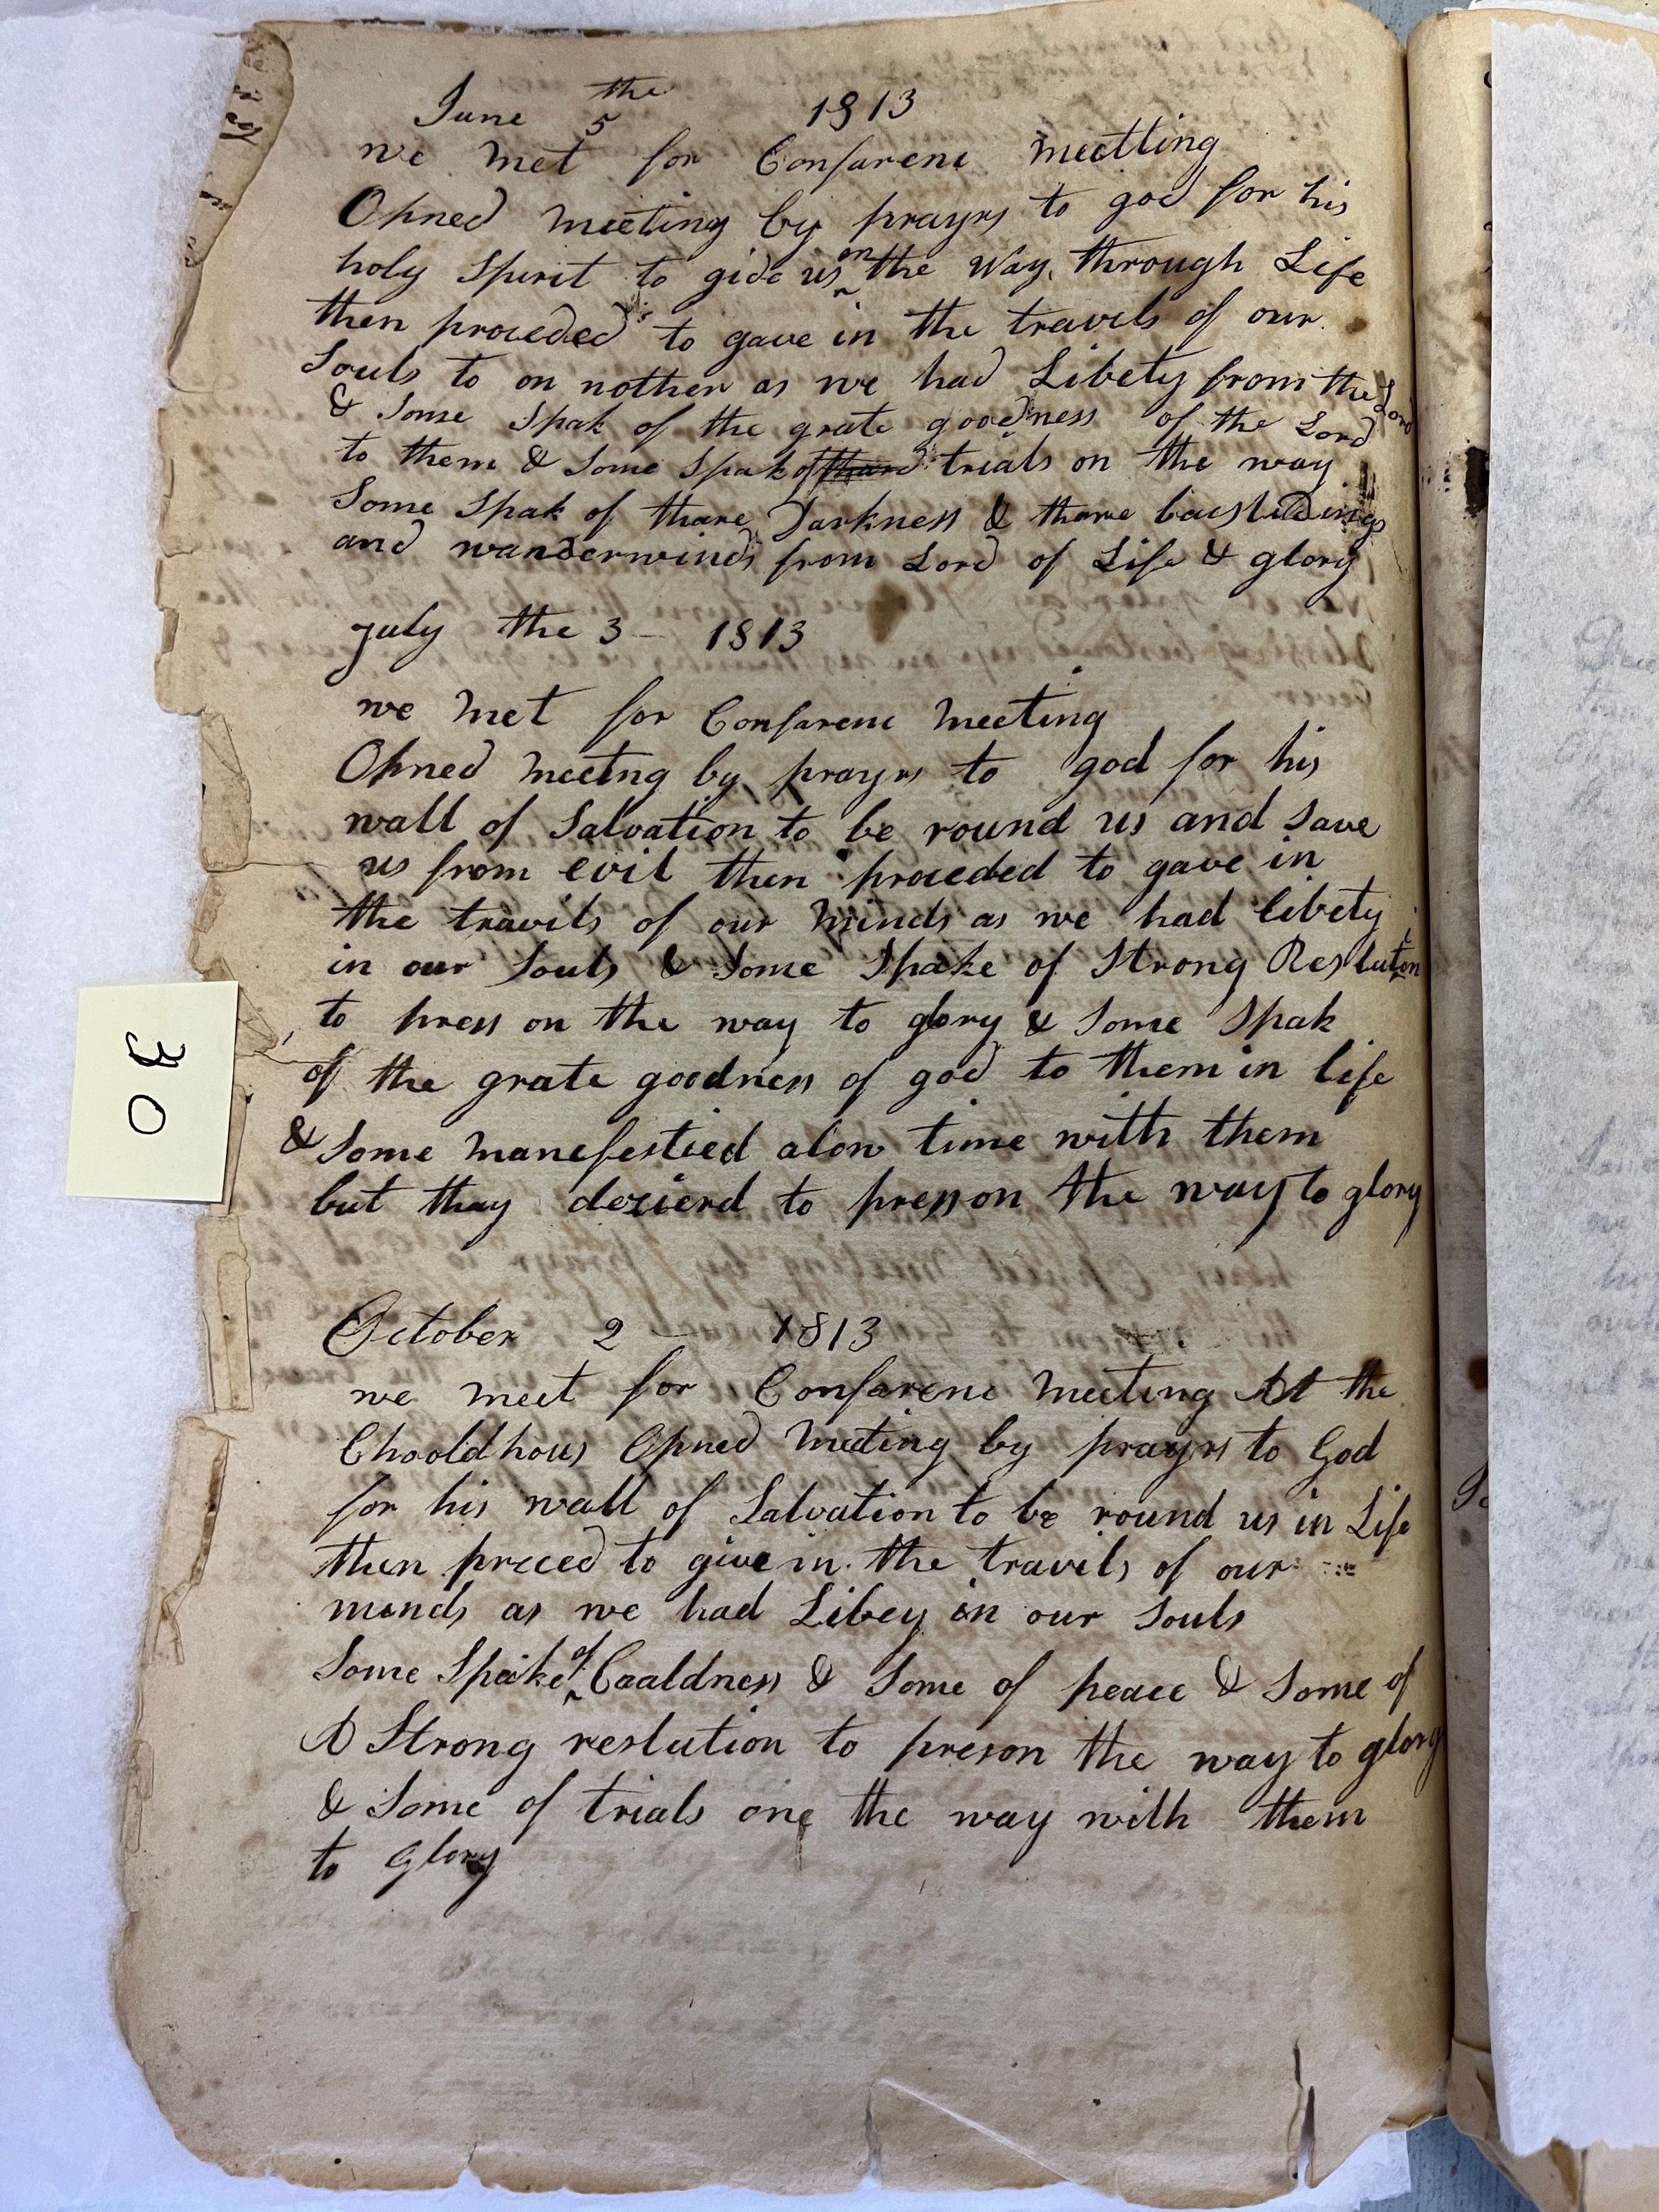 June 5 the 1813
we met for Confarene meetting
Opned meeting by prayrs to god for his
holy Spirit to gide us on the Way through Life
then proceded to gave in the travels of our
Souls to on nother as we had Libety from the Lord
& Some Spak of the grate goodness of the Lord
to them & Some Spak of thare trials on the way
Some Spak of thare Darkness & thare bacslidings
and wanderwinds from Lord of Life & glory
July the 3 - 1813
we met for Confarene meeting
Opned meetng by prayrs to god for his
wall of Salvation to be round us and Save
us from evil then proceded to gave in
the travils of our minds as we had libety
in our Souls & Some Spake of Strong Reslution
to press on the way to glory & Some Spak
of the grate goodness of god to them in life
& Some manefestied alow time with them
but thay dezierd to press on the way to glory
October 2 - 1813
we meet for Confarene meeting At the
Chooldhous Opned meeting by prayrs to God
for his wall of Salvation to be round us in Life
then preced to give in the travils of our
minds as we had Libey in our Souls
Some Spake of Caaldness & Some of peace & Some of
A Strong reslution to preson the way to glory
& Some of trials one the way with them
to Glory
30